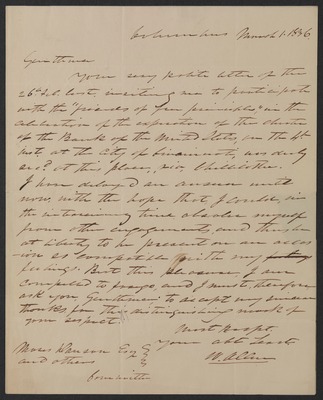 Columbus March 1. 1836
Gentlemen
Your very polite letter of the
26th Feb. last, inviting me to participate
with the "friends of free principles" in the
celebration of the expiration of the charter
of the Bank of the United States, on the 4th
inst. at the City of Cincinnati, was duly
recd. at this place, via Chillicothe.
I have delayed an answer until
now, with the hope that I could, in
the intervening time absolve myself
from other engagements, and thus be
at liberty to be present on an occas
ion so compatible with my
feelings. But this pleasure, I am
compelled to forego, and I must therefore
ask you Gentlemen to accept my sincere
thanks for this distinguishing mark of
your respect.
Most Respy.
Your obt Servt
W. Allen
Moses Dawson Esq
and others
Committee